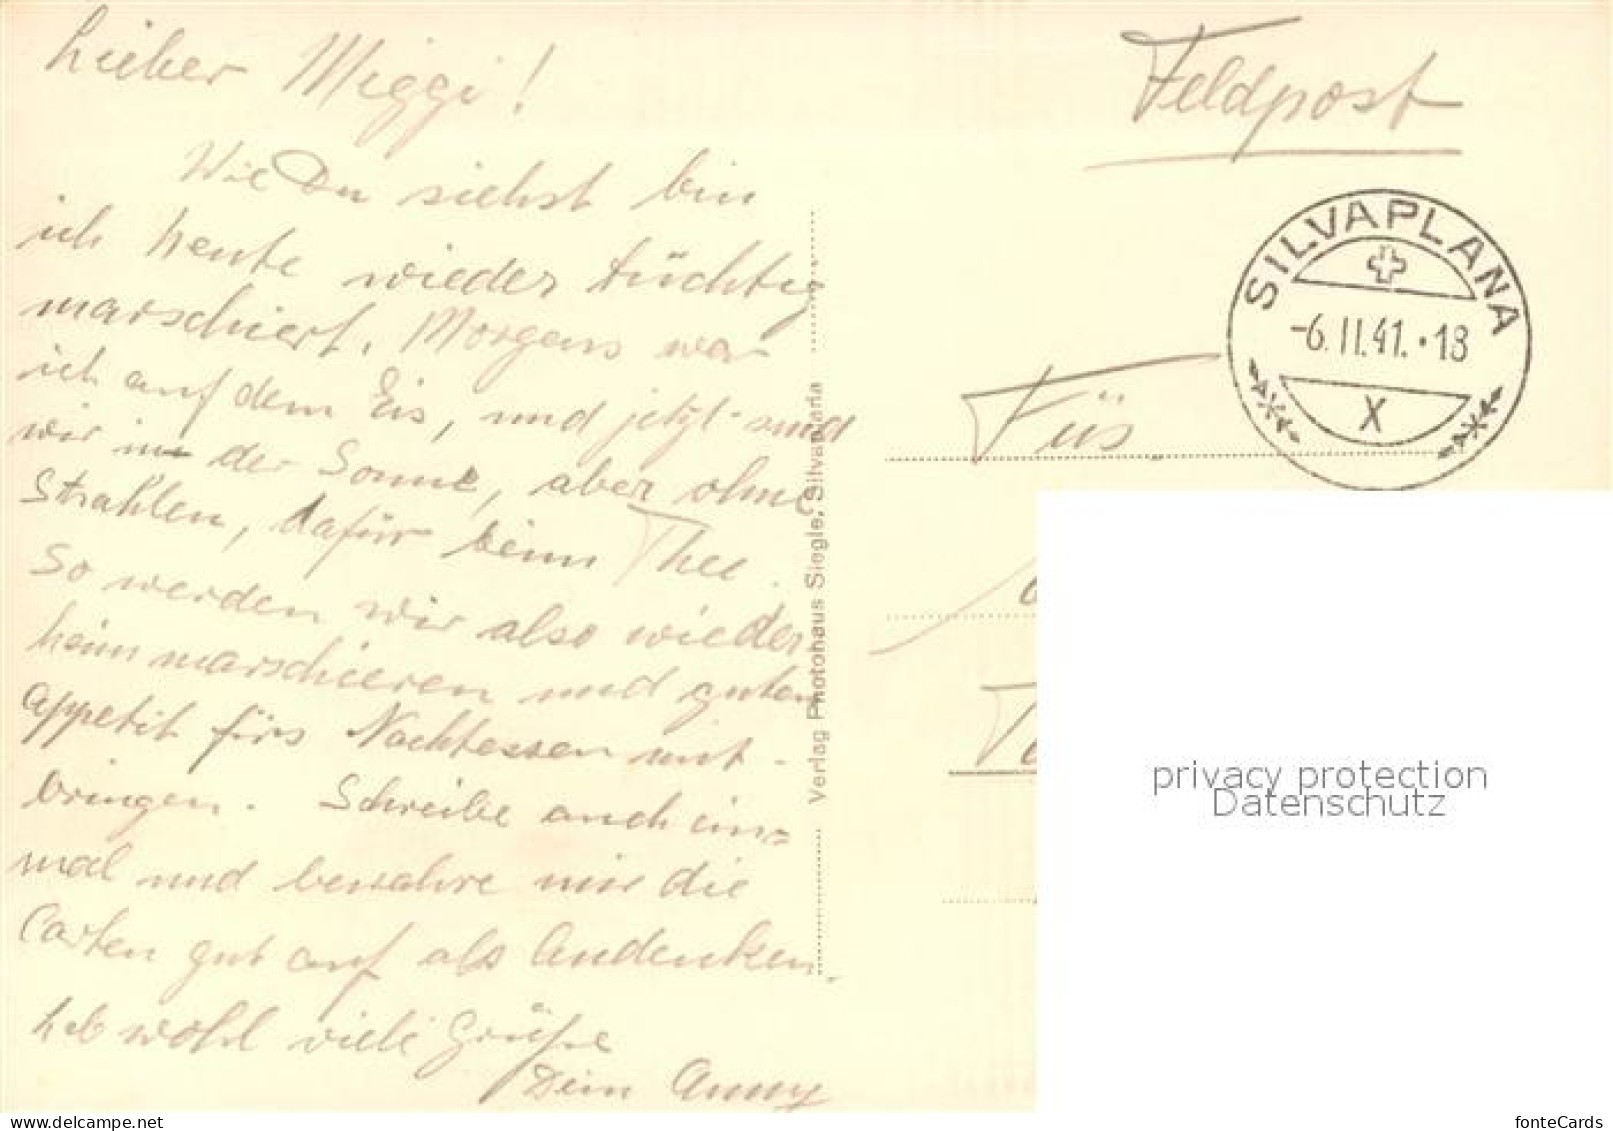 Lieber Miggi!
Wie Du siehst bin
ich heute wieder tüchtig
marschiert. Morgens war
ich auf dem Eis, und jetzt sind
wir in der Sonne, aber ohne
Strahlen, dafür beim Thee.
So werden wir also wieder
heim marschieren und guten
Appetit fürs Nachtessen mit-
bringen. Schreibe auch ein=
mal und bewahre mir die
Carten gut auf als Andenken.
Leb wohl viele Grüsse
Dein Anny
Verlag Photohaus Siegle, Silvaplana
Feldpost
SILVAPLANA
-6.II.41.·18
X
Füs
privacy protection
Datenschutz
www.delcampe.net
fonteCards